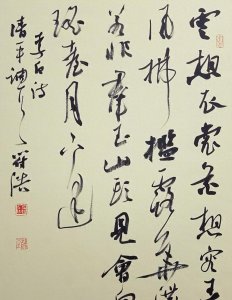 雲想衣裳花想容春
风拂檻露華濃
若非群玉山頭見會向
瑶臺月下逢
李白诗
清平调